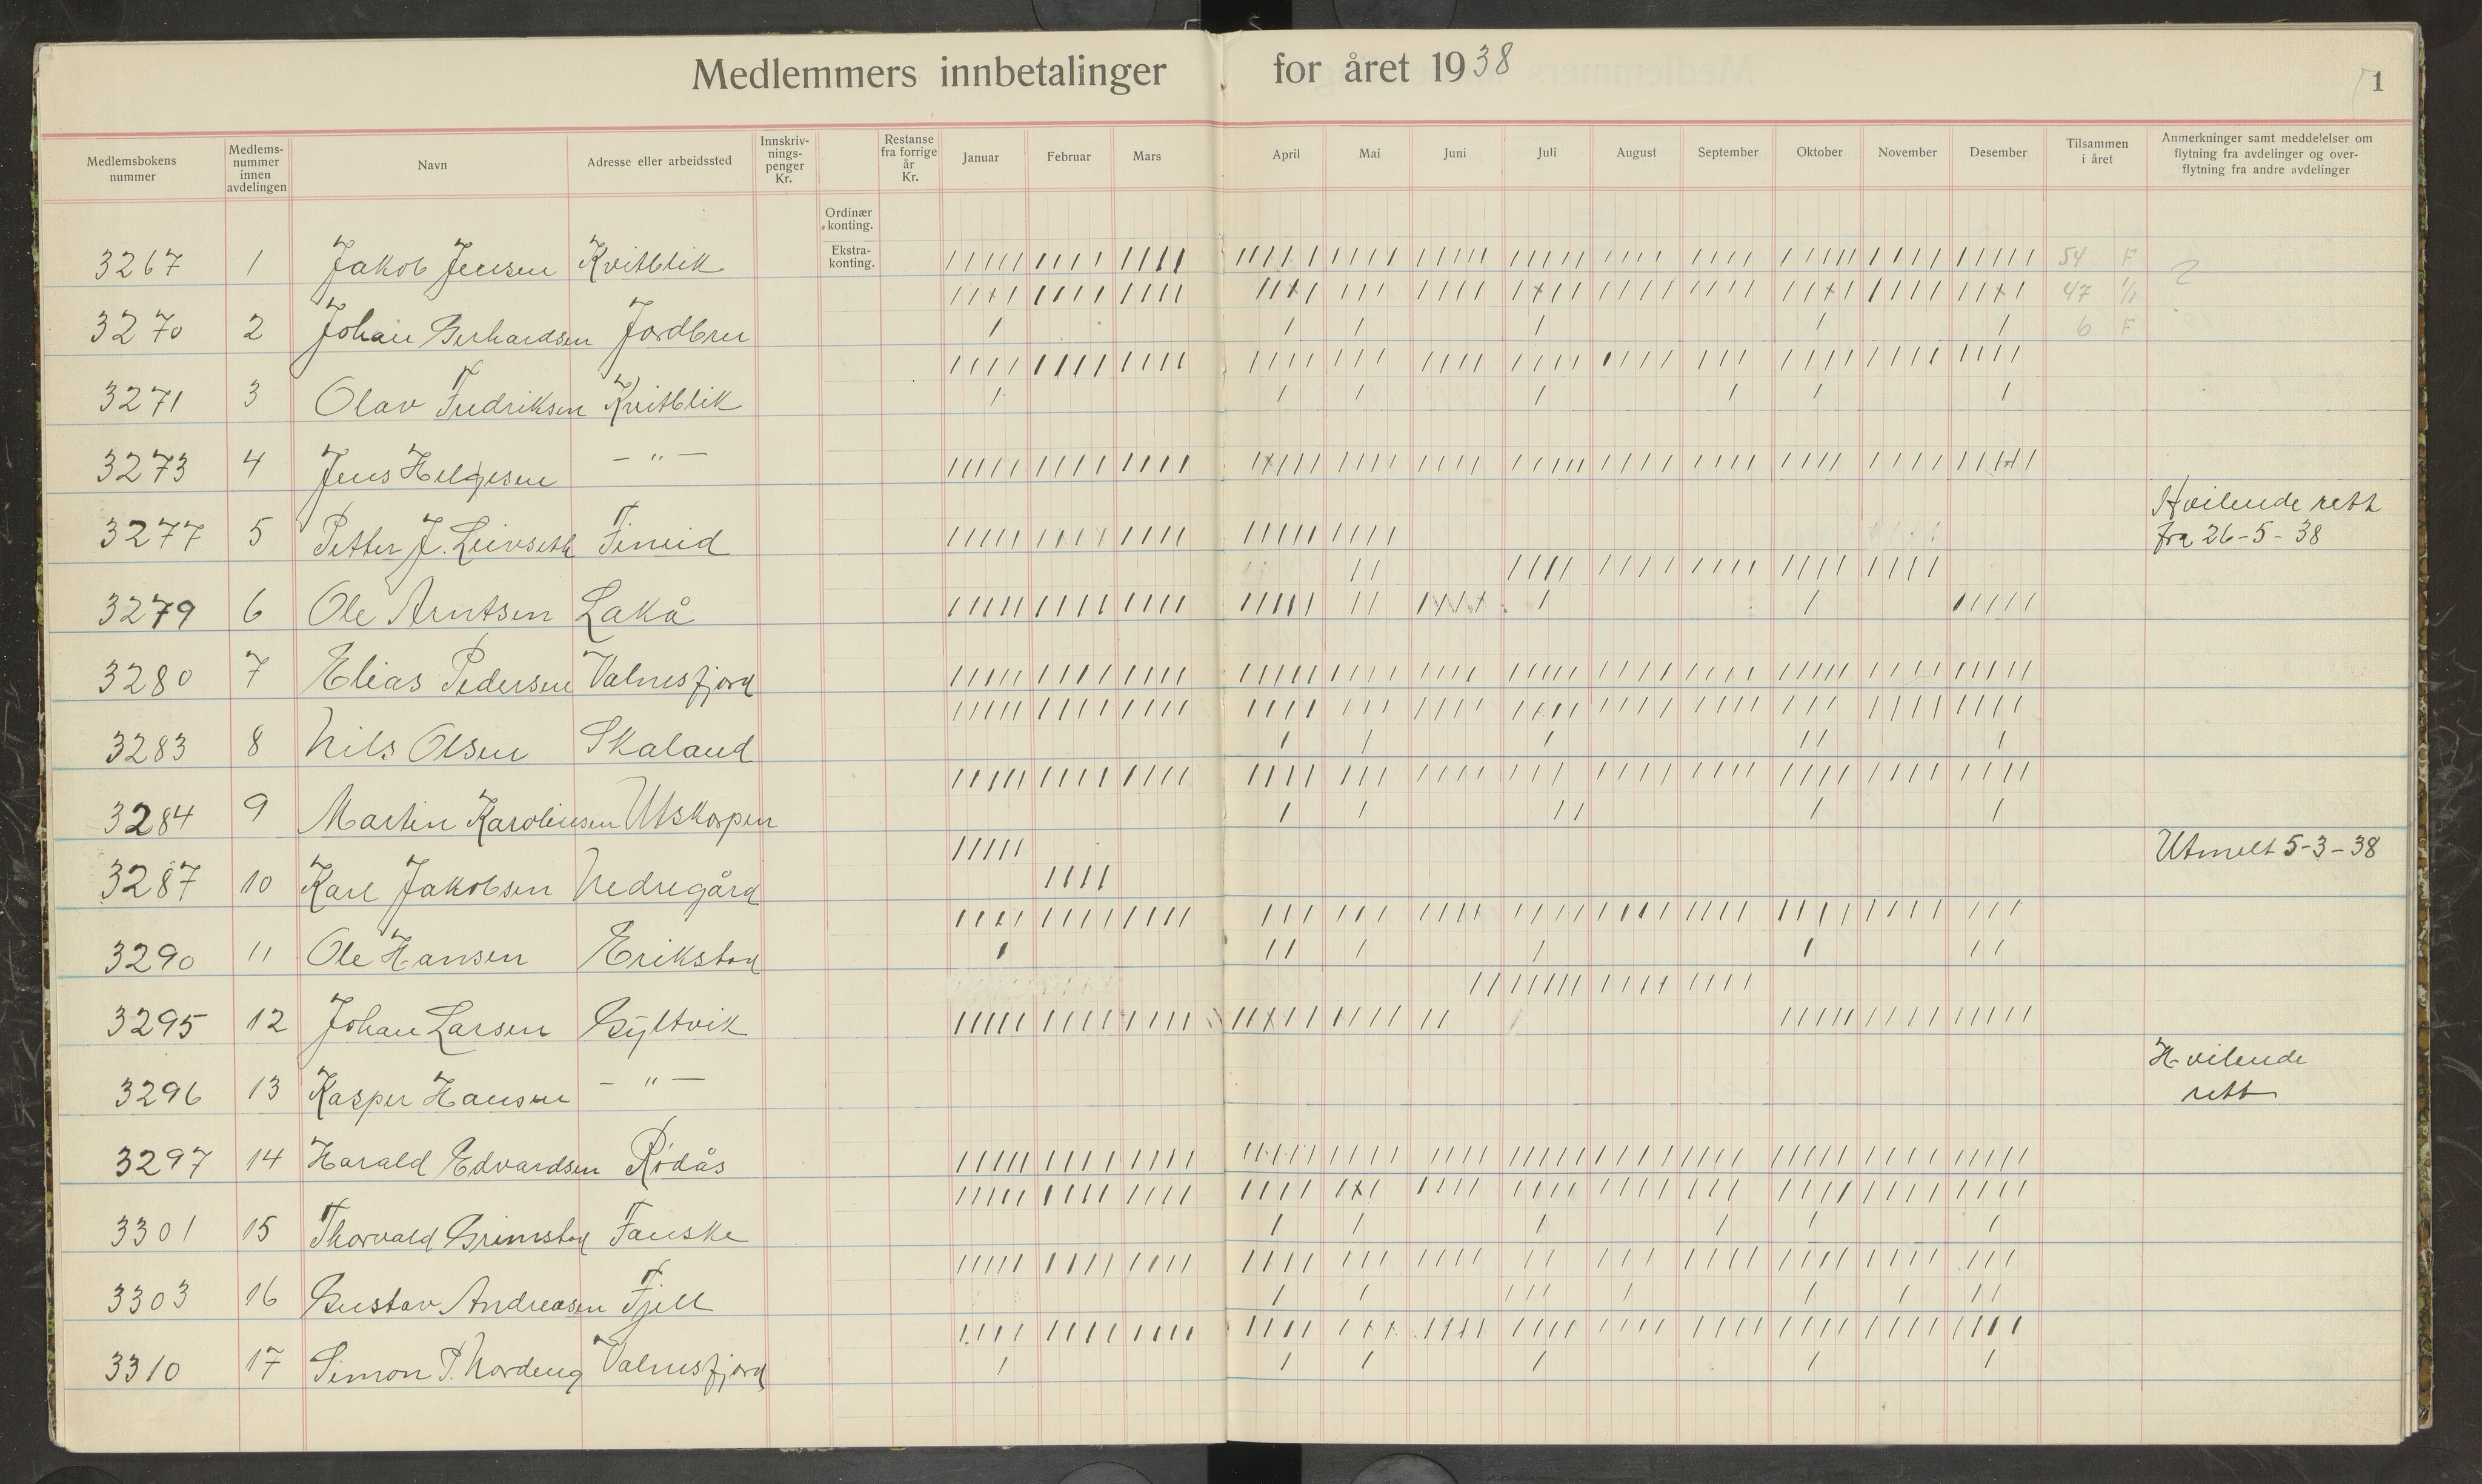 Medlemmers innbetalinger for året 1938
1
Medlemsbokens nummer
Medlems-nummer innen avdelingen
Navn
Adresse eller arbeidssted
Innskriv-nings-penger Kr.
Restanse fra forrige år Kr.
Januar
Februar
Mars
April
Mai
Juni
Juli
August
September
Oktober
November
Desember
Tilsammen i året
Anmerkninger samt meddelelser om flytning fra avdelinger og over-flytning fra andre avdelinger
Ordinær konting.
Ekstra-konting.
3267 1 Jakob Jensen Kvitblik 54 F ?
47 1/1
3270 2 Johan Gerhardsen Jordbru 6 F
3271 3 Olav Fredriksen Kvitblik
3273 4 Jens Helgesen — " —
3277 5 Petter J. Leivseth Fineid Hvilende rett
fra 26-5-38
3279 6 Ole Arntsen Lakå
3280 7 Elias Pedersen Valnesfjord
3283 8 Nils Olsen Skaland
3284 9 Martin Karolinsen Utskorpen
3287 10 Karl Jakobsen Nedregård Utmelt 5-3-38
3290 11 Ole Hansen Erikstad
3295 12 Johan Larsen Gyltvik
3296 13 Kasper Hansen — " — Hvilende
rett
3297 14 Harald Edvardsen Rödås
3301 15 Thorvald Grimstad Fauske
3303 16 Gustav Andreasen Fjell
3310 17 Simon P. Nordeng Valnesfjord